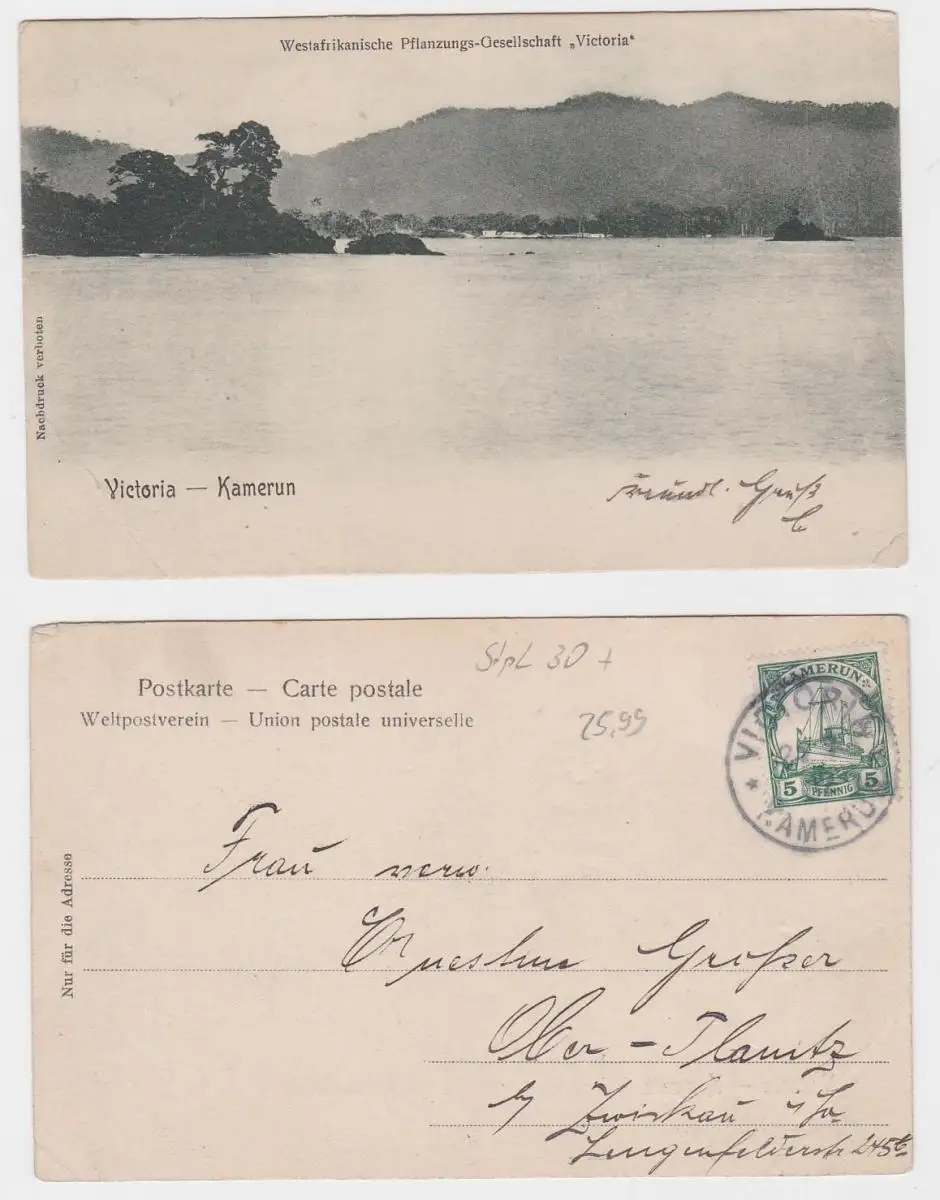 Westafrikanische Pflanzungs-Gesellschaft „Victoria“
Nachdruck verboten
Victoria — Kamerun
Freundl. Gruß
Stpl 30 +
25,99
Postkarte — Carte postale
Weltpostverein — Union postale universelle
KAMERUN
5 PFENNIG 5
VICTORIA
* KAMERUN
Nur für die Adresse
Frau verw.
Großer
Ober-Planitz
b/ Zwickau i/Sa
Lengenfelderstr 245